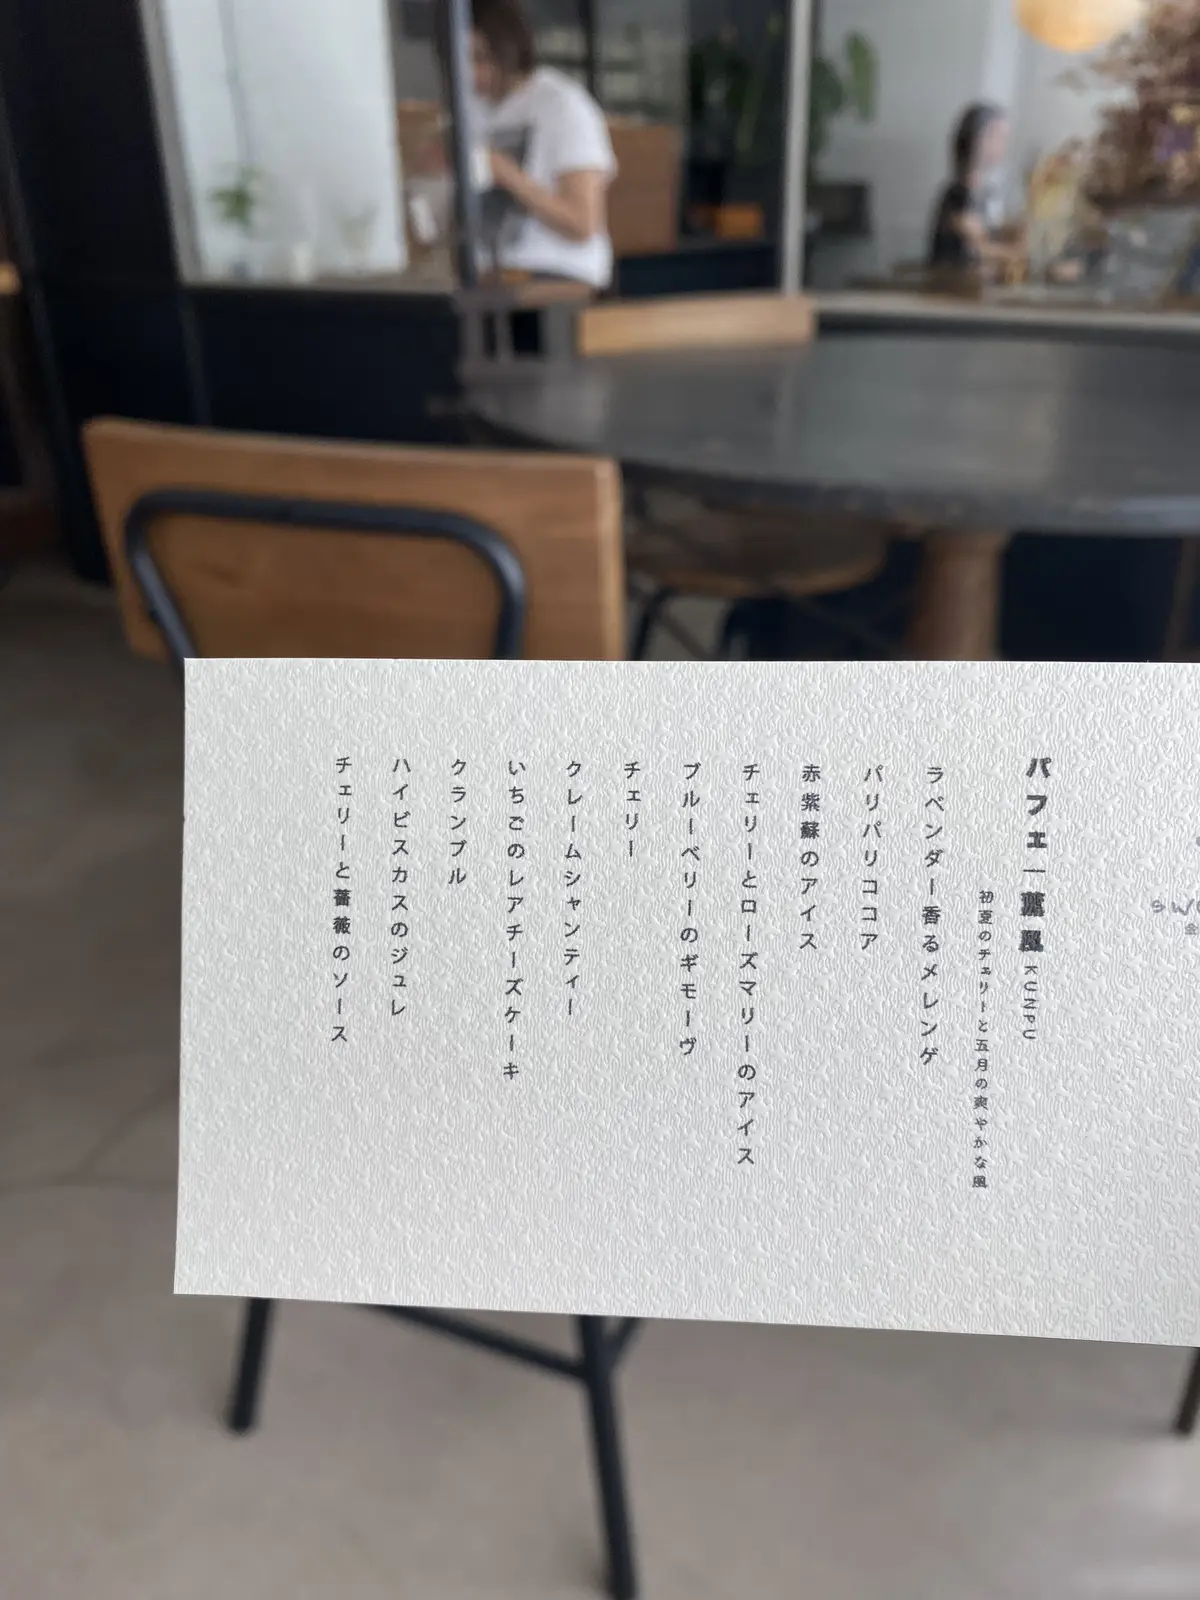 パフェ — 薫風 KUNPU
初夏のチェリーと五月の爽やかな風
ラベンダー香るメレンゲ
パリパリココア
赤紫蘇のアイス
チェリーとローズマリーのアイス
ブルーベリーのギモーヴ
チェリー
クレームシャンティー
いちごのレアチーズケーキ
クランブル
ハイビスカスのジュレ
チェリーと薔薇のソース